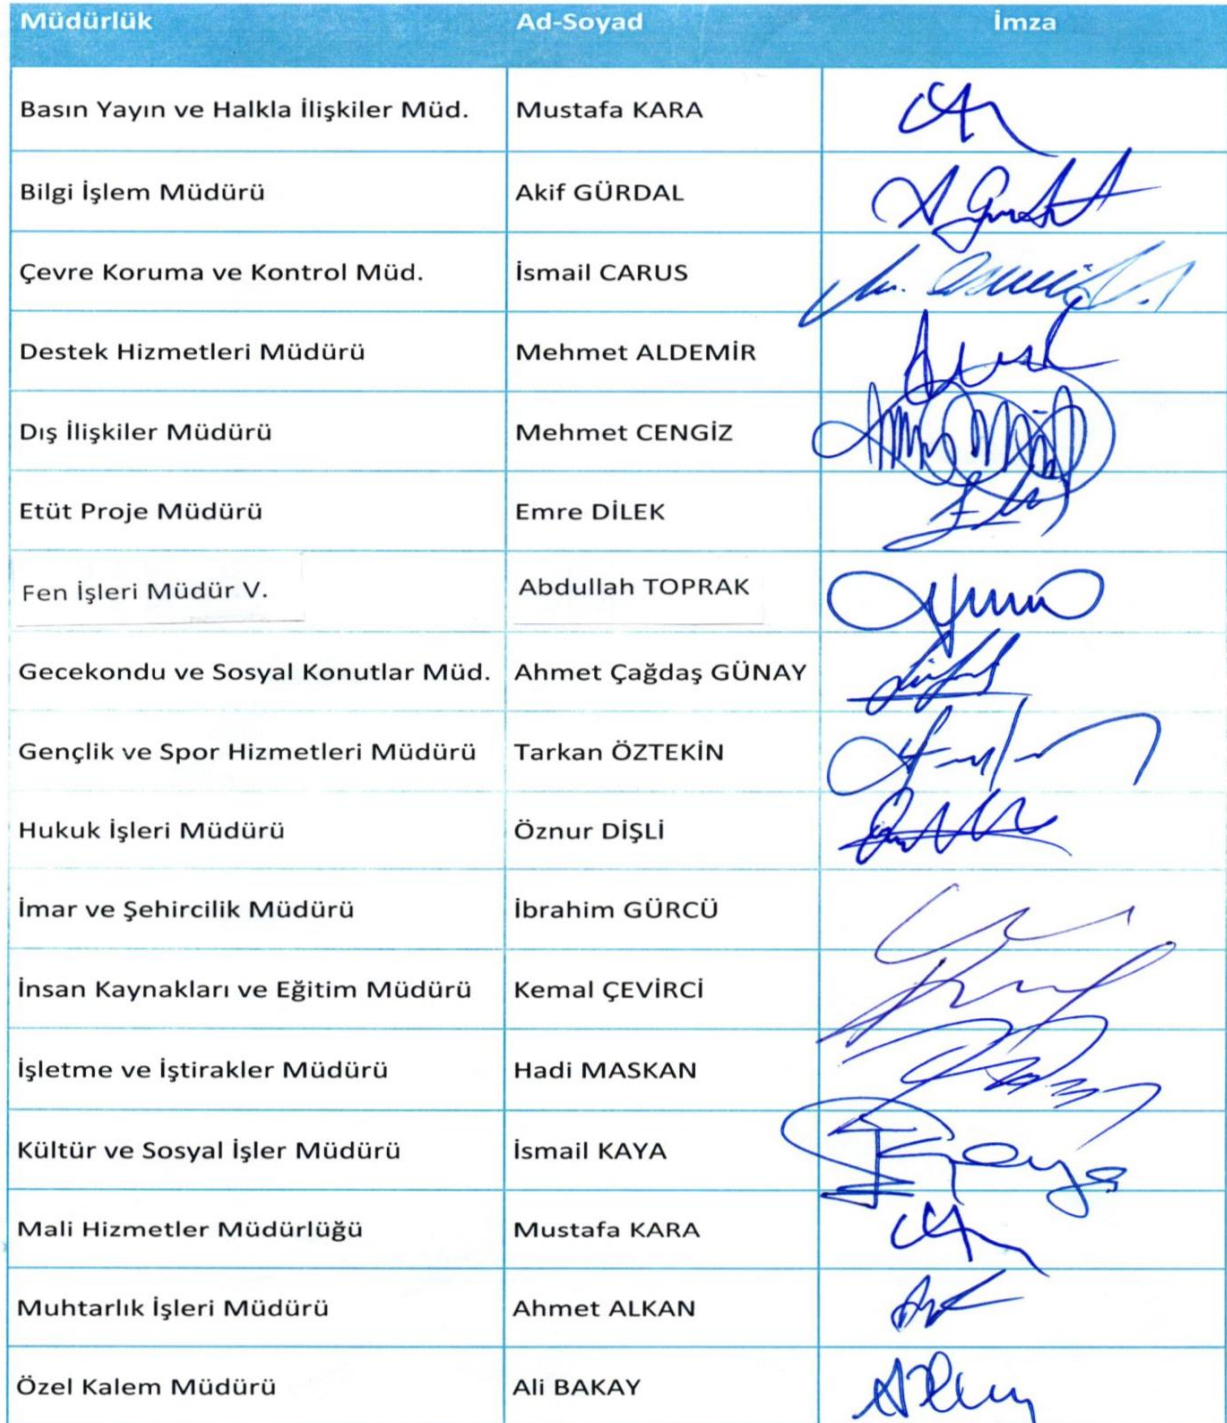 Müdürlük Ad-Soyad İmza
Basın Yayın ve Halkla İlişkiler Müd. Mustafa KARA
Bilgi İşlem Müdürü Akif GÜRDAL
Çevre Koruma ve Kontrol Müd. İsmail CARUS
Destek Hizmetleri Müdürü Mehmet ALDEMİR
Dış İlişkiler Müdürü Mehmet CENGİZ
Etüt Proje Müdürü Emre DİLEK
Fen İşleri Müdür V. Abdullah TOPRAK
Gecekondu ve Sosyal Konutlar Müd. Ahmet Çağdaş GÜNAY
Gençlik ve Spor Hizmetleri Müdürü Tarkan ÖZTEKİN
Hukuk İşleri Müdürü Öznur DİŞLİ
İmar ve Şehircilik Müdürü İbrahim GÜRCÜ
İnsan Kaynakları ve Eğitim Müdürü Kemal ÇEVİRCİ
İşletme ve İştirakler Müdürü Hadi MASKAN
Kültür ve Sosyal İşler Müdürü İsmail KAYA
Mali Hizmetler Müdürlüğü Mustafa KARA
Muhtarlık İşleri Müdürü Ahmet ALKAN
Özel Kalem Müdürü Ali BAKAY